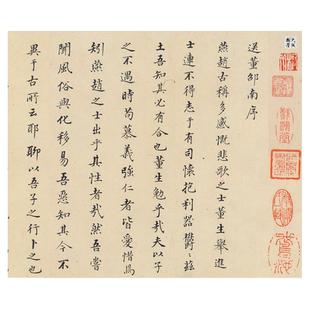 送董邵南序
燕趙古稱多感慨悲歌之士董生舉進
士連不得志于有司懷抱利器鬱鬱適
土吾知其必有合也董生勉乎哉夫以子
之不遇時苟慕義彊仁者皆愛惜焉
矧燕趙之士出乎其性者哉然吾嘗
聞風俗與化移易吾惡知其今不
異于古所云耶聊以吾子之行卜之也